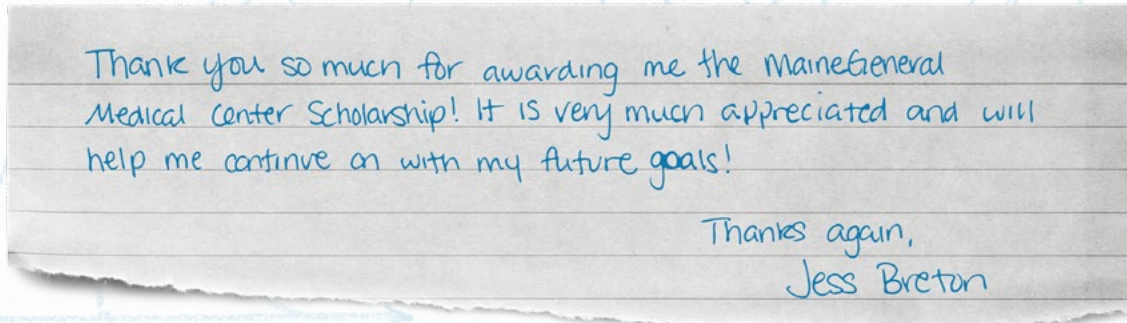 Thank you so much for awarding me the MaineGeneral
Medical Center Scholarship! It is very much appreciated and will
help me continue on with my future goals!
Thanks again,
Jess Breton